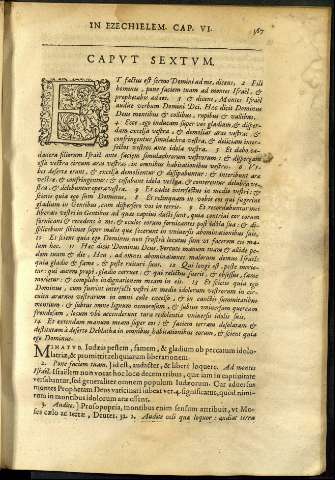 IN EZECHIELEM. CAP. VI.
367
CAPVT SEXTVM.
ET factus est sermo Domini ad me, dicens, 2 Fili
hominis, pone faciem tuam ad montes Israël, &
prophetabis ad eos. 3 & dices, Montes Israël
audite verbum Domini Dei. Hæc dicit Dominus
Deus montibus & collibus, rupibus & vallibus.
Ecce ego inducam super vos gladium, & disperdam
excelsa vestra, & demoliar aras vestras: &
confringentur simulachra vestra, & deiiciam interfectos
vestros ante idola vestra. 5 Et dabo cadavera
filiorum Israël ante faciem simulachrorum vestrorum: & dispergam
ossa vestra circum aras vestras in omnibus habitationibus vestris.
desertæ erunt, & excelsa demolientur & dissipabuntur: & interibunt aræ
vestræ, & confringentur: & cessabunt idola vestra, & conterentur delubra vestra,
& delebuntur opera vestra. 7 Et cadet interfectus in medio vestri: &
scietis quia ego sum Dominus. 8 Et relinquam in vobis eos qui fugerint
gladium in Gentibus, cum dispersero vos in terris.
liberati vestri in Gentibus ad quas captivi ducti sunt, quia contrivi cor eorum
fornicans & recedens à me, & oculos eorum fornicantes post idola sua: &
displicebunt sibimet super malis quæ fecerunt in universis abominationibus suis.
10 Et scient quia ego Dominus non frustrà locutus sum ut facerem eis malum
hoc. 11 Hæc dicit Dominus Deus, Percute manum tuam & allide pedem
tuum & dic, Heu, ad omnes abominationes malorum domus Israël:
quia gladio & fame, & peste ruituri sunt. 12 Qui longè est, peste morietur:
qui autem propè, gladio corruet: & qui relictus fuerit, & obsessus, fame
morietur: & complebo indignationem meam in eis. 13 Et scietis quia ego
Dominus, cum fuerint interfecti vestri in medio idolorum vestrorum in circuitu
ararum vestrarum in omni colle excelso, & in cunctis summitatibus
montium, & subtus omne lignum nemorosum, & subtus universam quercum
frondosam, locum ubi accenderunt tura redolentia universis idolis suis.
14 Et extendam manum meam super eos: & faciam terram desolatam &
destitutam à deserto Deblatha in omnibus habitationibus eorum, & scient quia
ego Dominus.
MINATVR Iudæis pestem, famem, & gladium ob peccatum idololatriæ,
& promittit reliquarum liberationem.
2. Pone faciem tuam.] id est, audacter, & liberè loquere. Ad montes
Israël. Israëlem non vocat hoc loco decem tribus, quæ iam in captivitate
versabantur, sed generaliter omnem populum Iudæorum. Cur adversus
montes Prophetam Deus vaticinari iubeat ver. 4. significat, quod nimirum
in montibus idolorum aræ essent.
3. Audite.] Prosopopœia, montibus enim sensum attribuit, ut Moses
cælo ac terræ, Deuter. 32. 1. Audite cœli quæ loquor: audiat terra